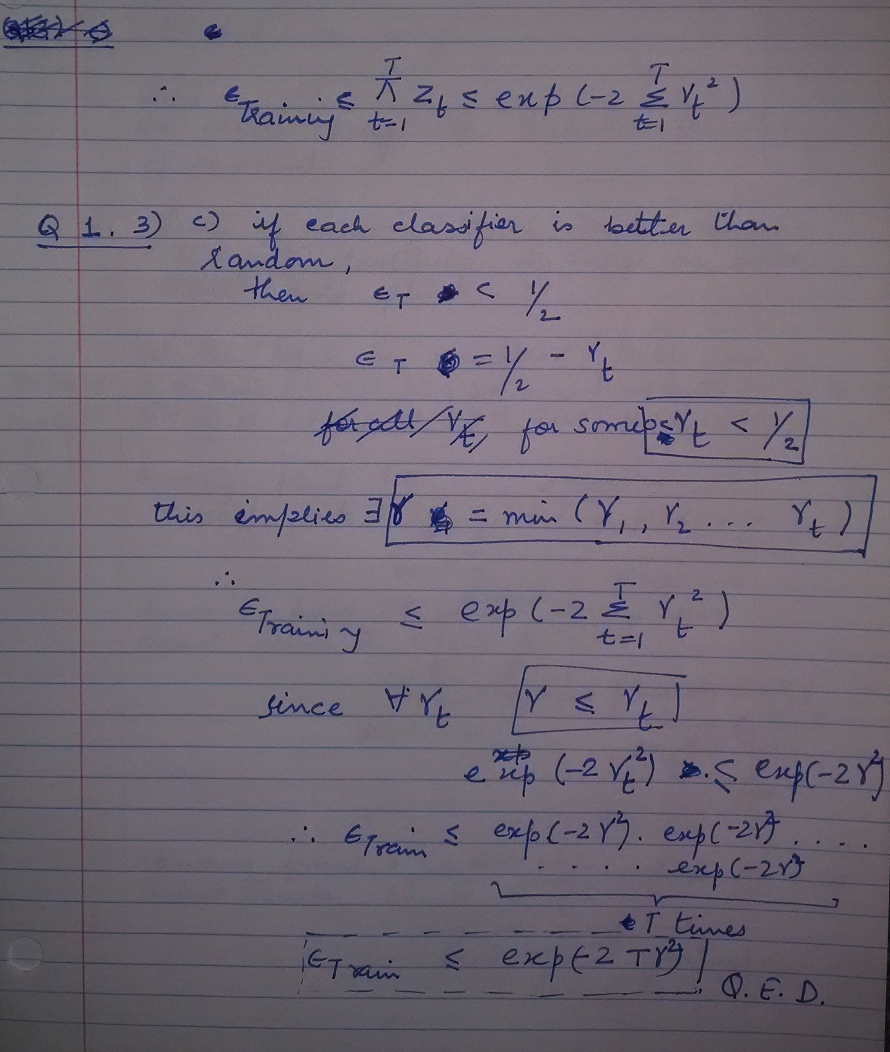 ∴ ϵ_Training ≤ T π t=1 Z_t ≤ exp (-2 Σ_{t=1}^{T} γ_t²)
Q 1. 3) c) if each classifier is better than
random,
then ϵ_T < 1/2
ϵ_T = 1/2 - γ_t
for all γ_t, for some γ_t < 1/2
this implies ∃ γ = min (γ_1, γ_2 ... γ_t)
∴
ϵ_Training ≤ exp (-2 Σ_{t=1}^{T} γ_t²)
since ∀ γ_t γ ≤ γ_t
exp (-2 γ_t²) ≤ exp(-2γ²)
∴ ϵ_Train ≤ exp(-2γ²). exp(-2γ²) ....
.... exp(-2γ²)
T times
ϵ_Train ≤ exp(-2 Tγ²)
Q. E. D.